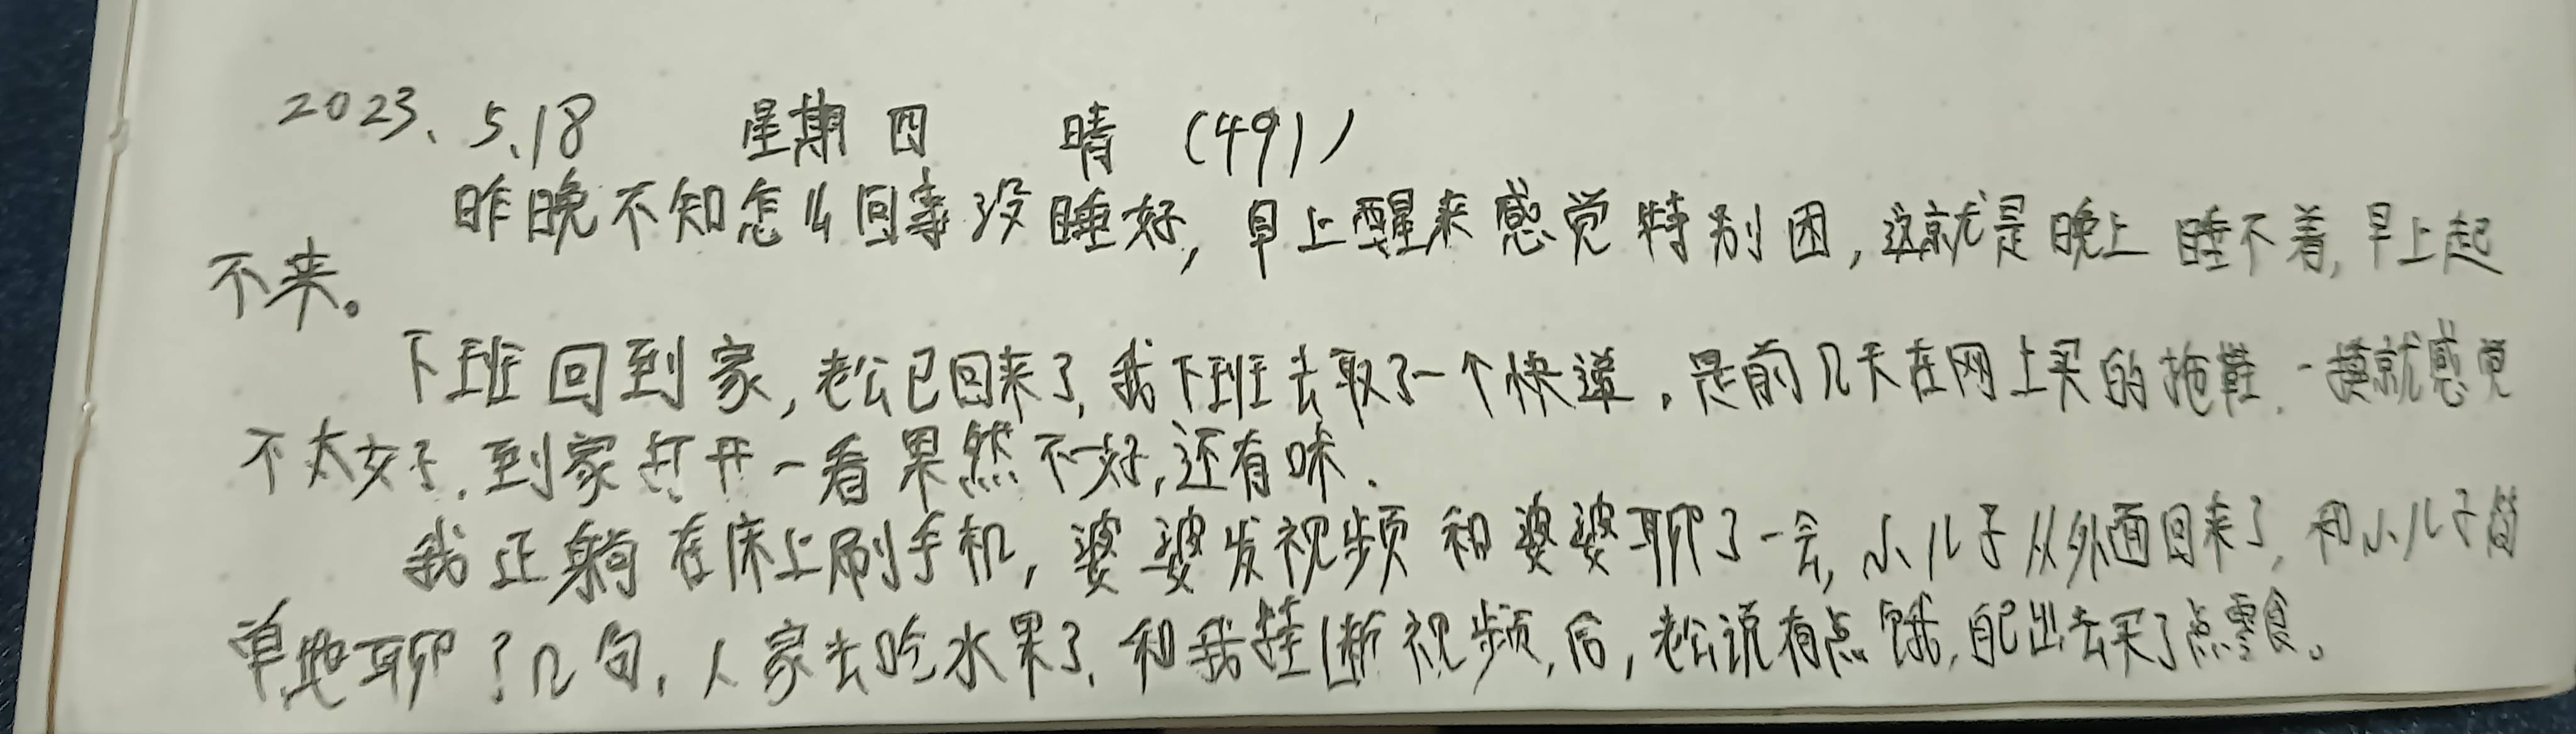 2023、5、18 星期四 晴 (491)
昨晚不知怎么回事没睡好,早上醒来感觉特别困,这就是晚上睡不着,早上起
不来。
下班回到家,老公已回来了,我下班去取了一个快递,是前几天在网上买的拖鞋.一摸就感觉
不太好.到家打开一看果然不好,还有味.
我正躺在床上刷手机,婆婆发视频和婆婆聊了一会,小儿子从外面回来了,和小儿子简
单地聊了几句,人家去吃水果了.和我挂断视频,后,老公说有点饿,自己出去买了点零食。